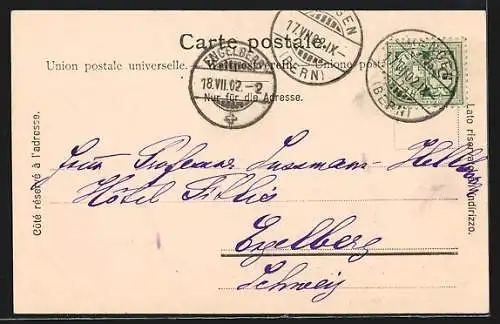 Carte postale.
Union postale universelle. Weltpostverein. Unione post
Nur für die Adresse.
ENGELBERG
18.VII.02.-2
17.VII.02.IX-
(BERN)
(BERN)
Côté réservé à l'adresse.
Lato riservato all'indirizzo.
Frau Professor Sussmann-Hell
Hôtel
Engelberg
Schweiz